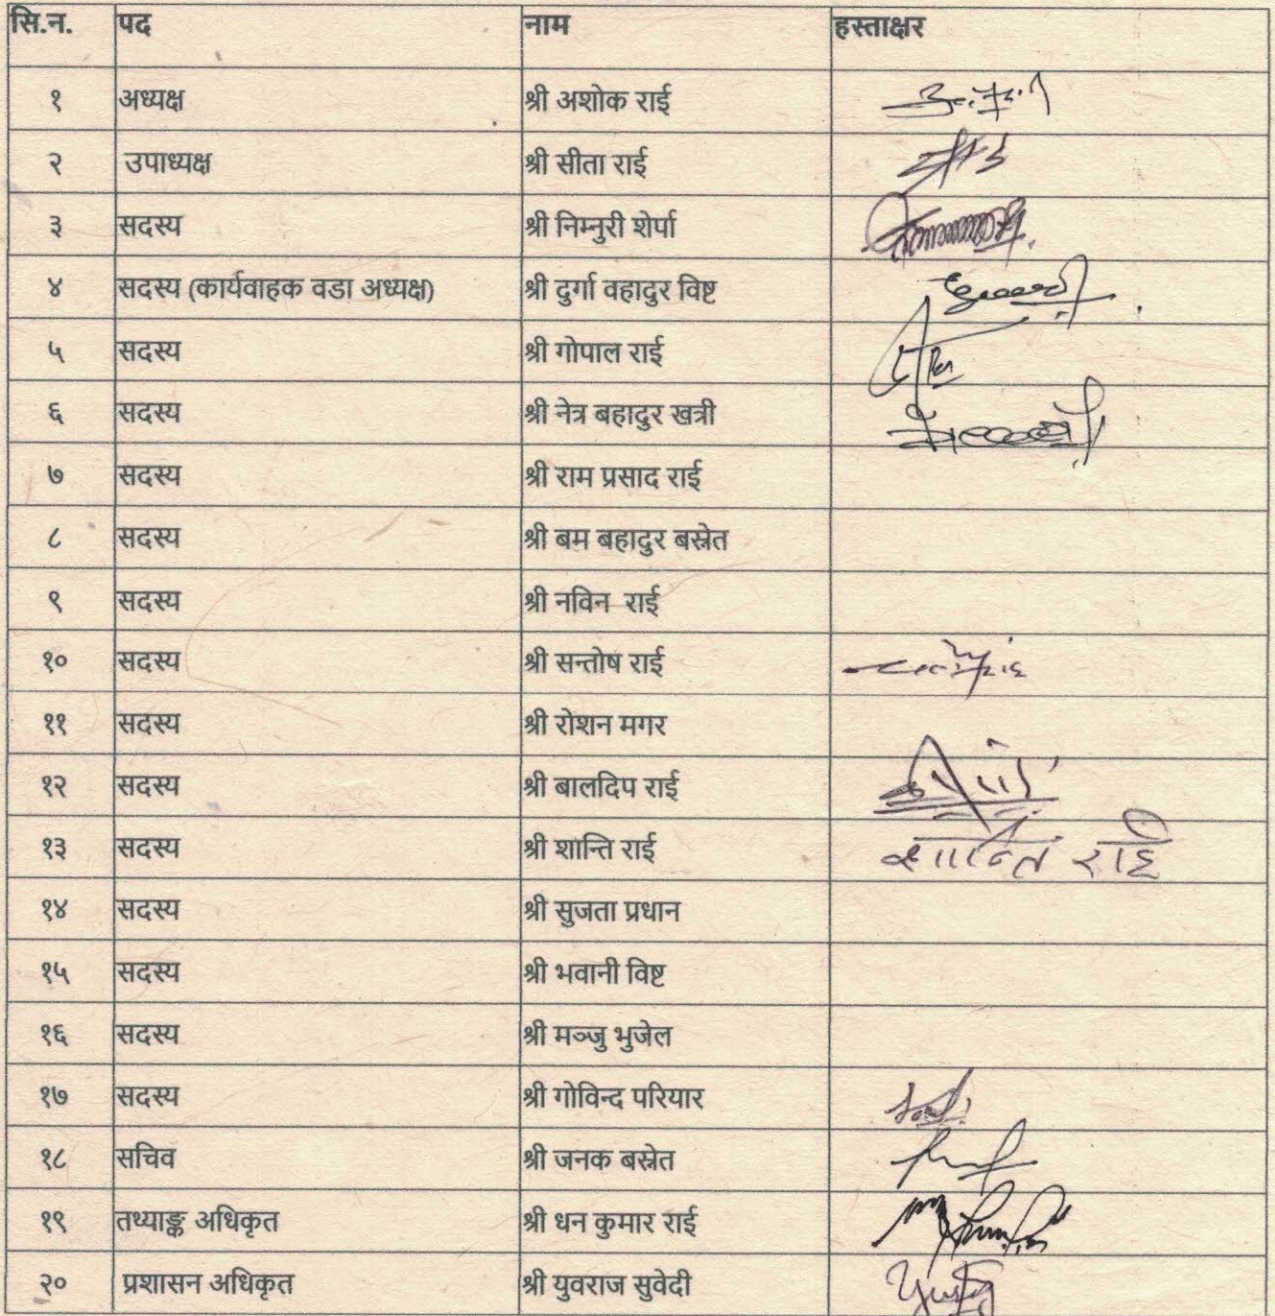 सि.न. पद नाम हस्ताक्षर
१ अध्यक्ष श्री अशोक राई
२ उपाध्यक्ष श्री सीता राई
३ सदस्य श्री निम्नुरी शेर्पा
४ सदस्य (कार्यवाहक वडा अध्यक्ष) श्री दुर्गा वहादुर विष्ट
५ सदस्य श्री गोपाल राई
६ सदस्य श्री नेत्र बहादुर खत्री
७ सदस्य श्री राम प्रसाद राई
८ सदस्य श्री बम बहादुर बस्नेत
९ सदस्य श्री नविन राई
१० सदस्य श्री सन्तोष राई
११ सदस्य श्री रोशन मगर
१२ सदस्य श्री बालदिप राई
१३ सदस्य श्री शान्ति राई शान्ति राई
१४ सदस्य श्री सुजता प्रधान
१५ सदस्य श्री भवानी विष्ट
१६ सदस्य श्री मञ्जु भुजेल
१७ सदस्य श्री गोविन्द परियार
१८ सचिव श्री जनक बस्नेत
१९ तथ्याङ्क अधिकृत श्री धन कुमार राई
२० प्रशासन अधिकृत श्री युवराज सुवेदी